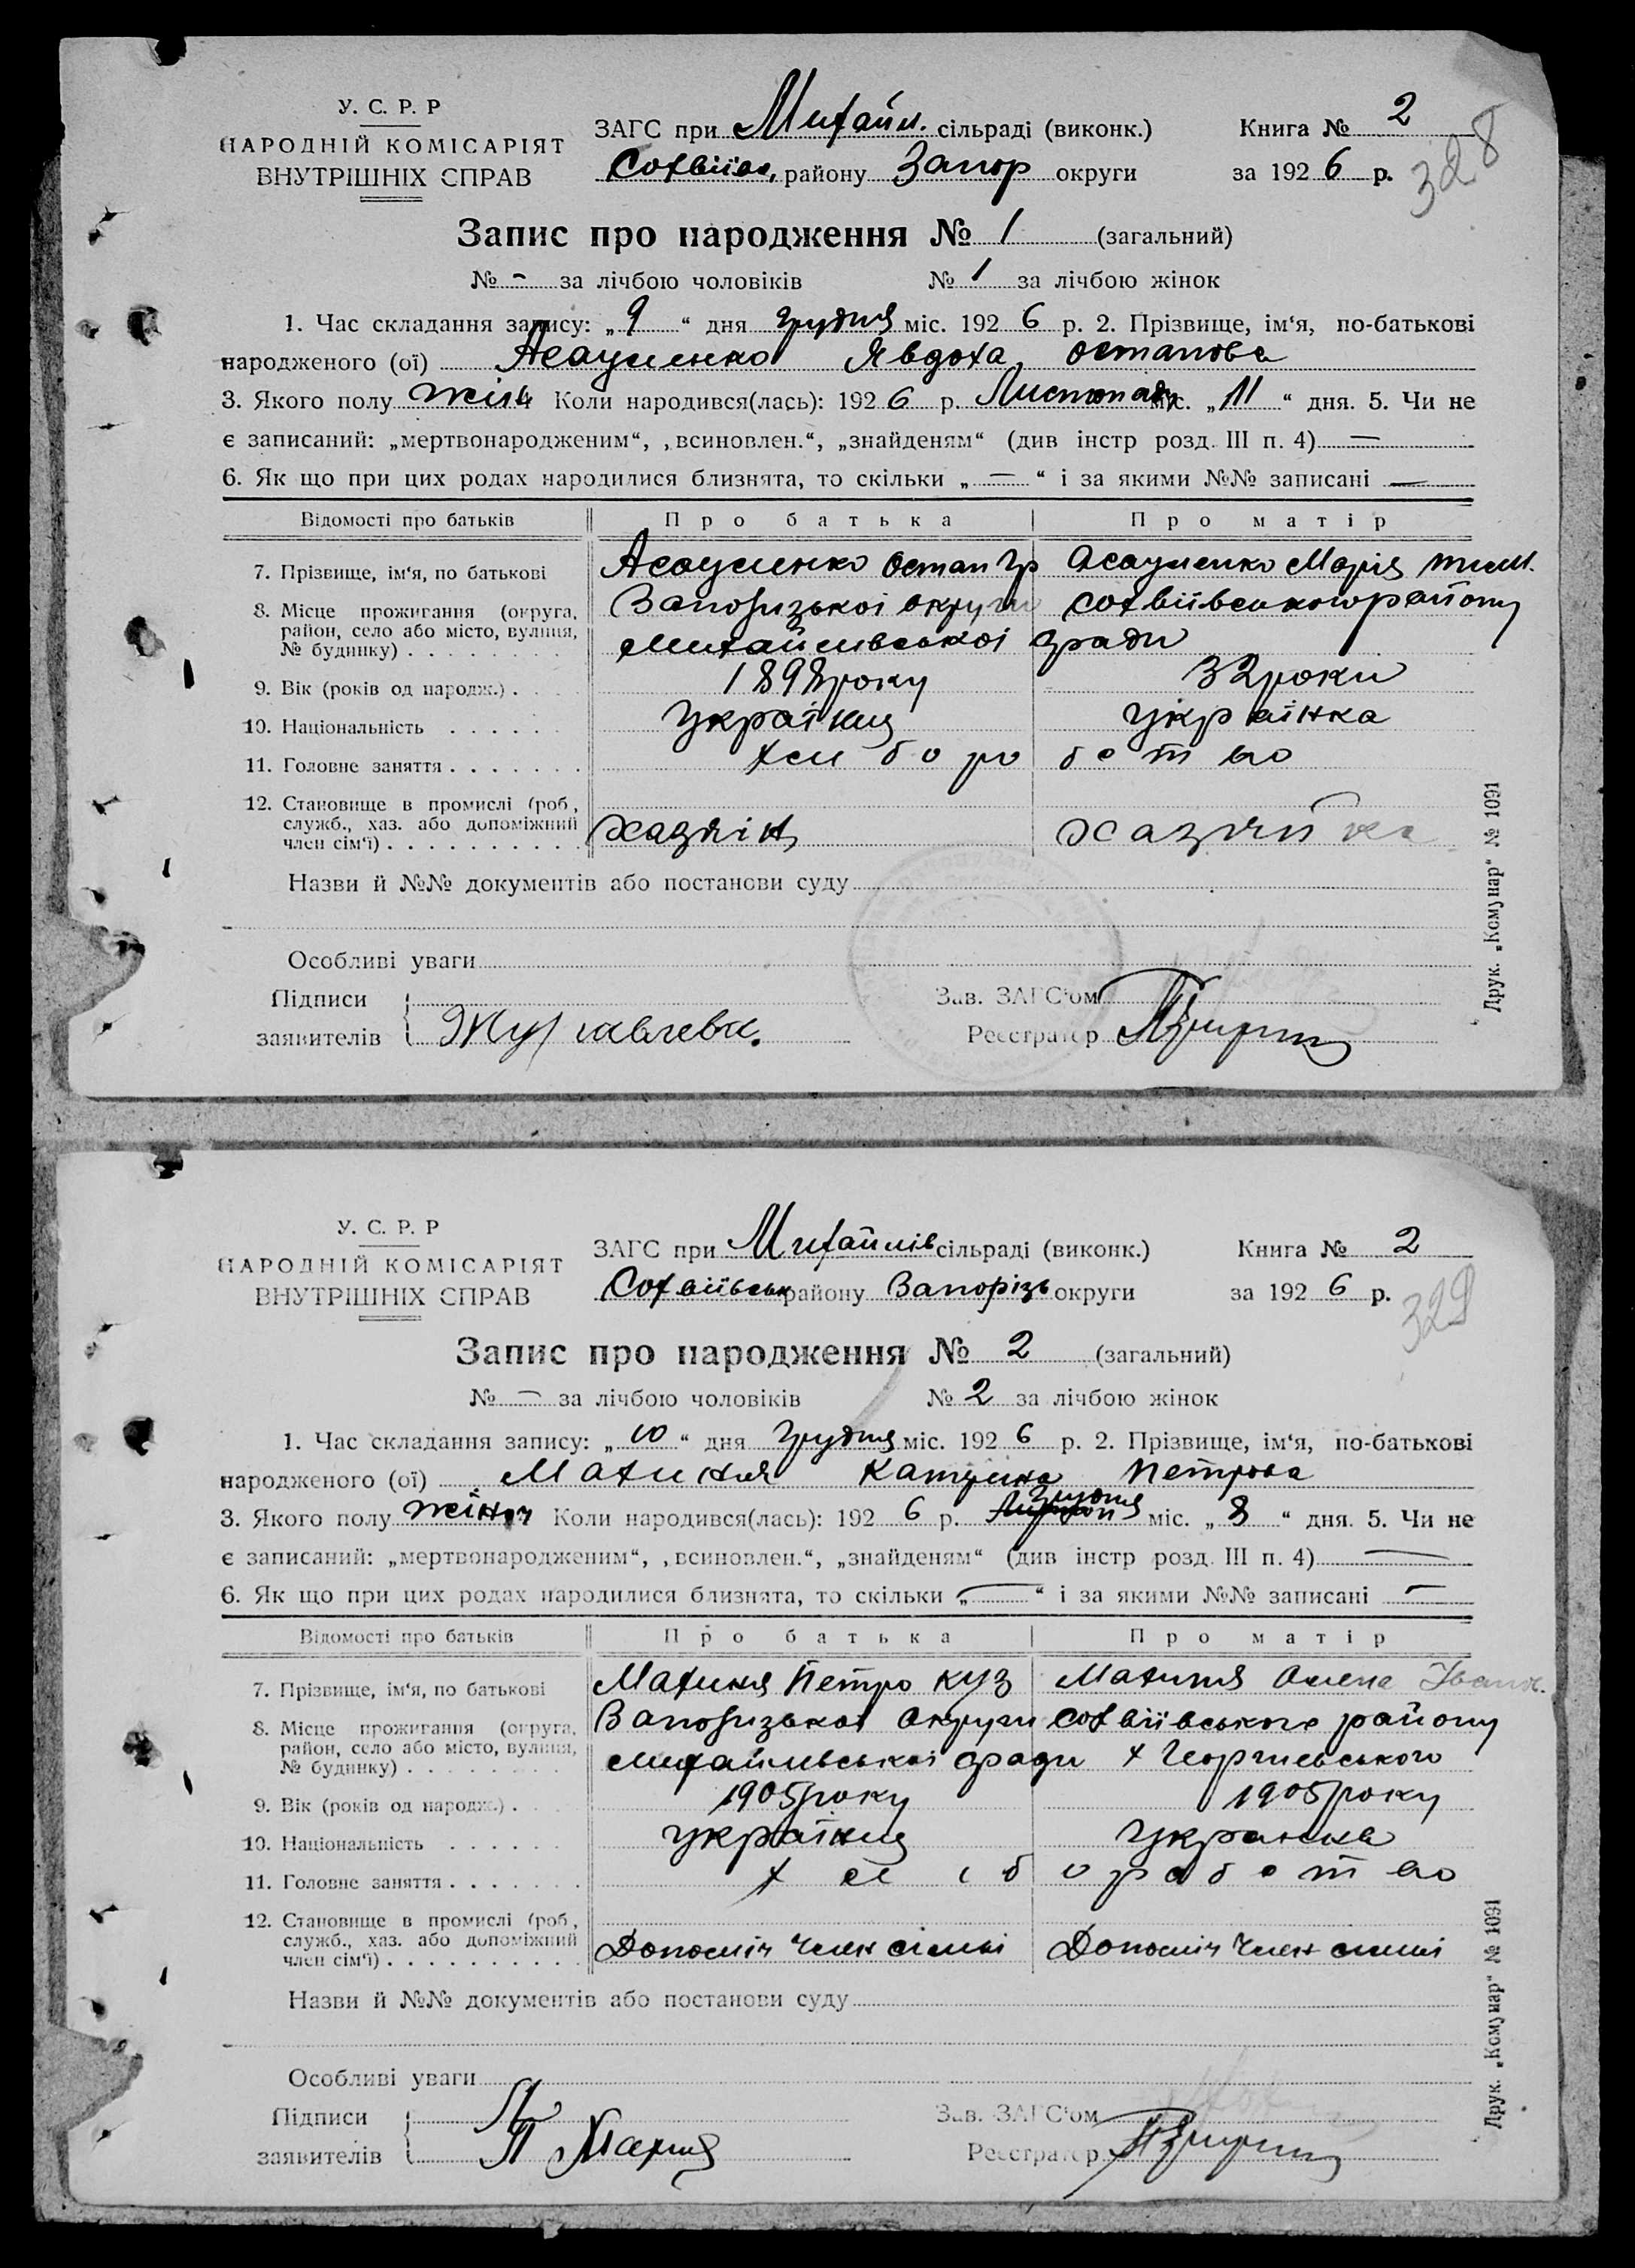 У. С. Р. Р
НАРОДНІЙ КОМІСАРІЯТ
ВНУТРІШНІХ СПРАВ
ЗАГС при Михайл. сільраді (виконк.)
Софіїв, району Запор округи
Книга № 2
за 1926 р.
328
Запис про народження № 1 (загальний)
№ - за лічбою чоловіків № 1 за лічбою жінок
1. Час складання запису: „9“ дня грудня міс. 1926 р. 2. Прізвище, ім‘я, по-батькові
народженого (ої) Асауленко Явдоха Остапова
3. Якого полу жін Коли народився(лась): 1926 р. Листопад міс. „11“ дня. 5. Чи не
є записаний: „мертвонародженим“, „всиновлен.“, „знайденям“ (див інстр розд. III п. 4) —
6. Як що при цих родах народилися близнята, то скільки „—“ і за якими №№ записані —
Відомості про батьків Про батька Про матір
7. Прізвище, ім‘я, по батькові Асауленко Остап Гр Асауленко Марія Тим.
8. Місце прожигання (округа, Запорізької округи Софіївського району
район, село або місто, вулиця, Михайлівської с/ради
№ будинку)
9. Вік (років од народж.) 1898 року 32 роки
10. Національність українця українка
11. Головне заняття хліборобство
12. Становище в промислі (роб,
служб., хаз. або допоміжний хазяін хазяйка
член сім‘ї)
Назви й №№ документів або постанови суду
Особливі уваги
Підписи Зав. ЗАГС‘ом
заявителів Реєстратор
Друк. „Комунар“ № 1091
У. С. Р. Р
НАРОДНІЙ КОМІСАРІЯТ
ВНУТРІШНІХ СПРАВ
ЗАГС при Михайлів сільраді (виконк.)
Софіївськ району Запорізь округи
Книга № 2
за 1926 р.
329
Запис про народження № 2 (загальний)
№ — за лічбою чоловіків № 2 за лічбою жінок
1. Час складання запису: „10“ дня грудня міс. 1926 р. 2. Прізвище, ім‘я, по-батькові
народженого (ої) Махиня Катерина Петрова
3. Якого полу жіноч Коли народився(лась): 1926 р. грудня міс. „8“ дня. 5. Чи не
є записаний: „мертвонародженим“, „всиновлен.“, „знайденям“ (див інстр розд. III п. 4) —
6. Як що при цих родах народилися близнята, то скільки „—“ і за якими №№ записані —
Відомості про батьків Про батька Про матір
7. Прізвище, ім‘я, по батькові Махиня Петро Куз Махиня Олена Іванов.
8. Місце прожигання (округа, Запорізької округи Софіївського району
район, село або місто, вулиця, Михайлівської с/ради х Георгиевського
№ будинку)
9. Вік (років од народж.) 1905 року 1905 року
10. Національність українця украінка
11. Головне заняття хліборобство
12. Становище в промислі (роб,
служб., хаз. або допоміжний Допоміч член сімьі Допоміч член сімьі
член сім‘ї)
Назви й №№ документів або постанови суду
Особливі уваги
Підписи Зав. ЗАГС‘ом
заявителів П Махиня Реєстратор
Друк. „Комунар“ № 1091